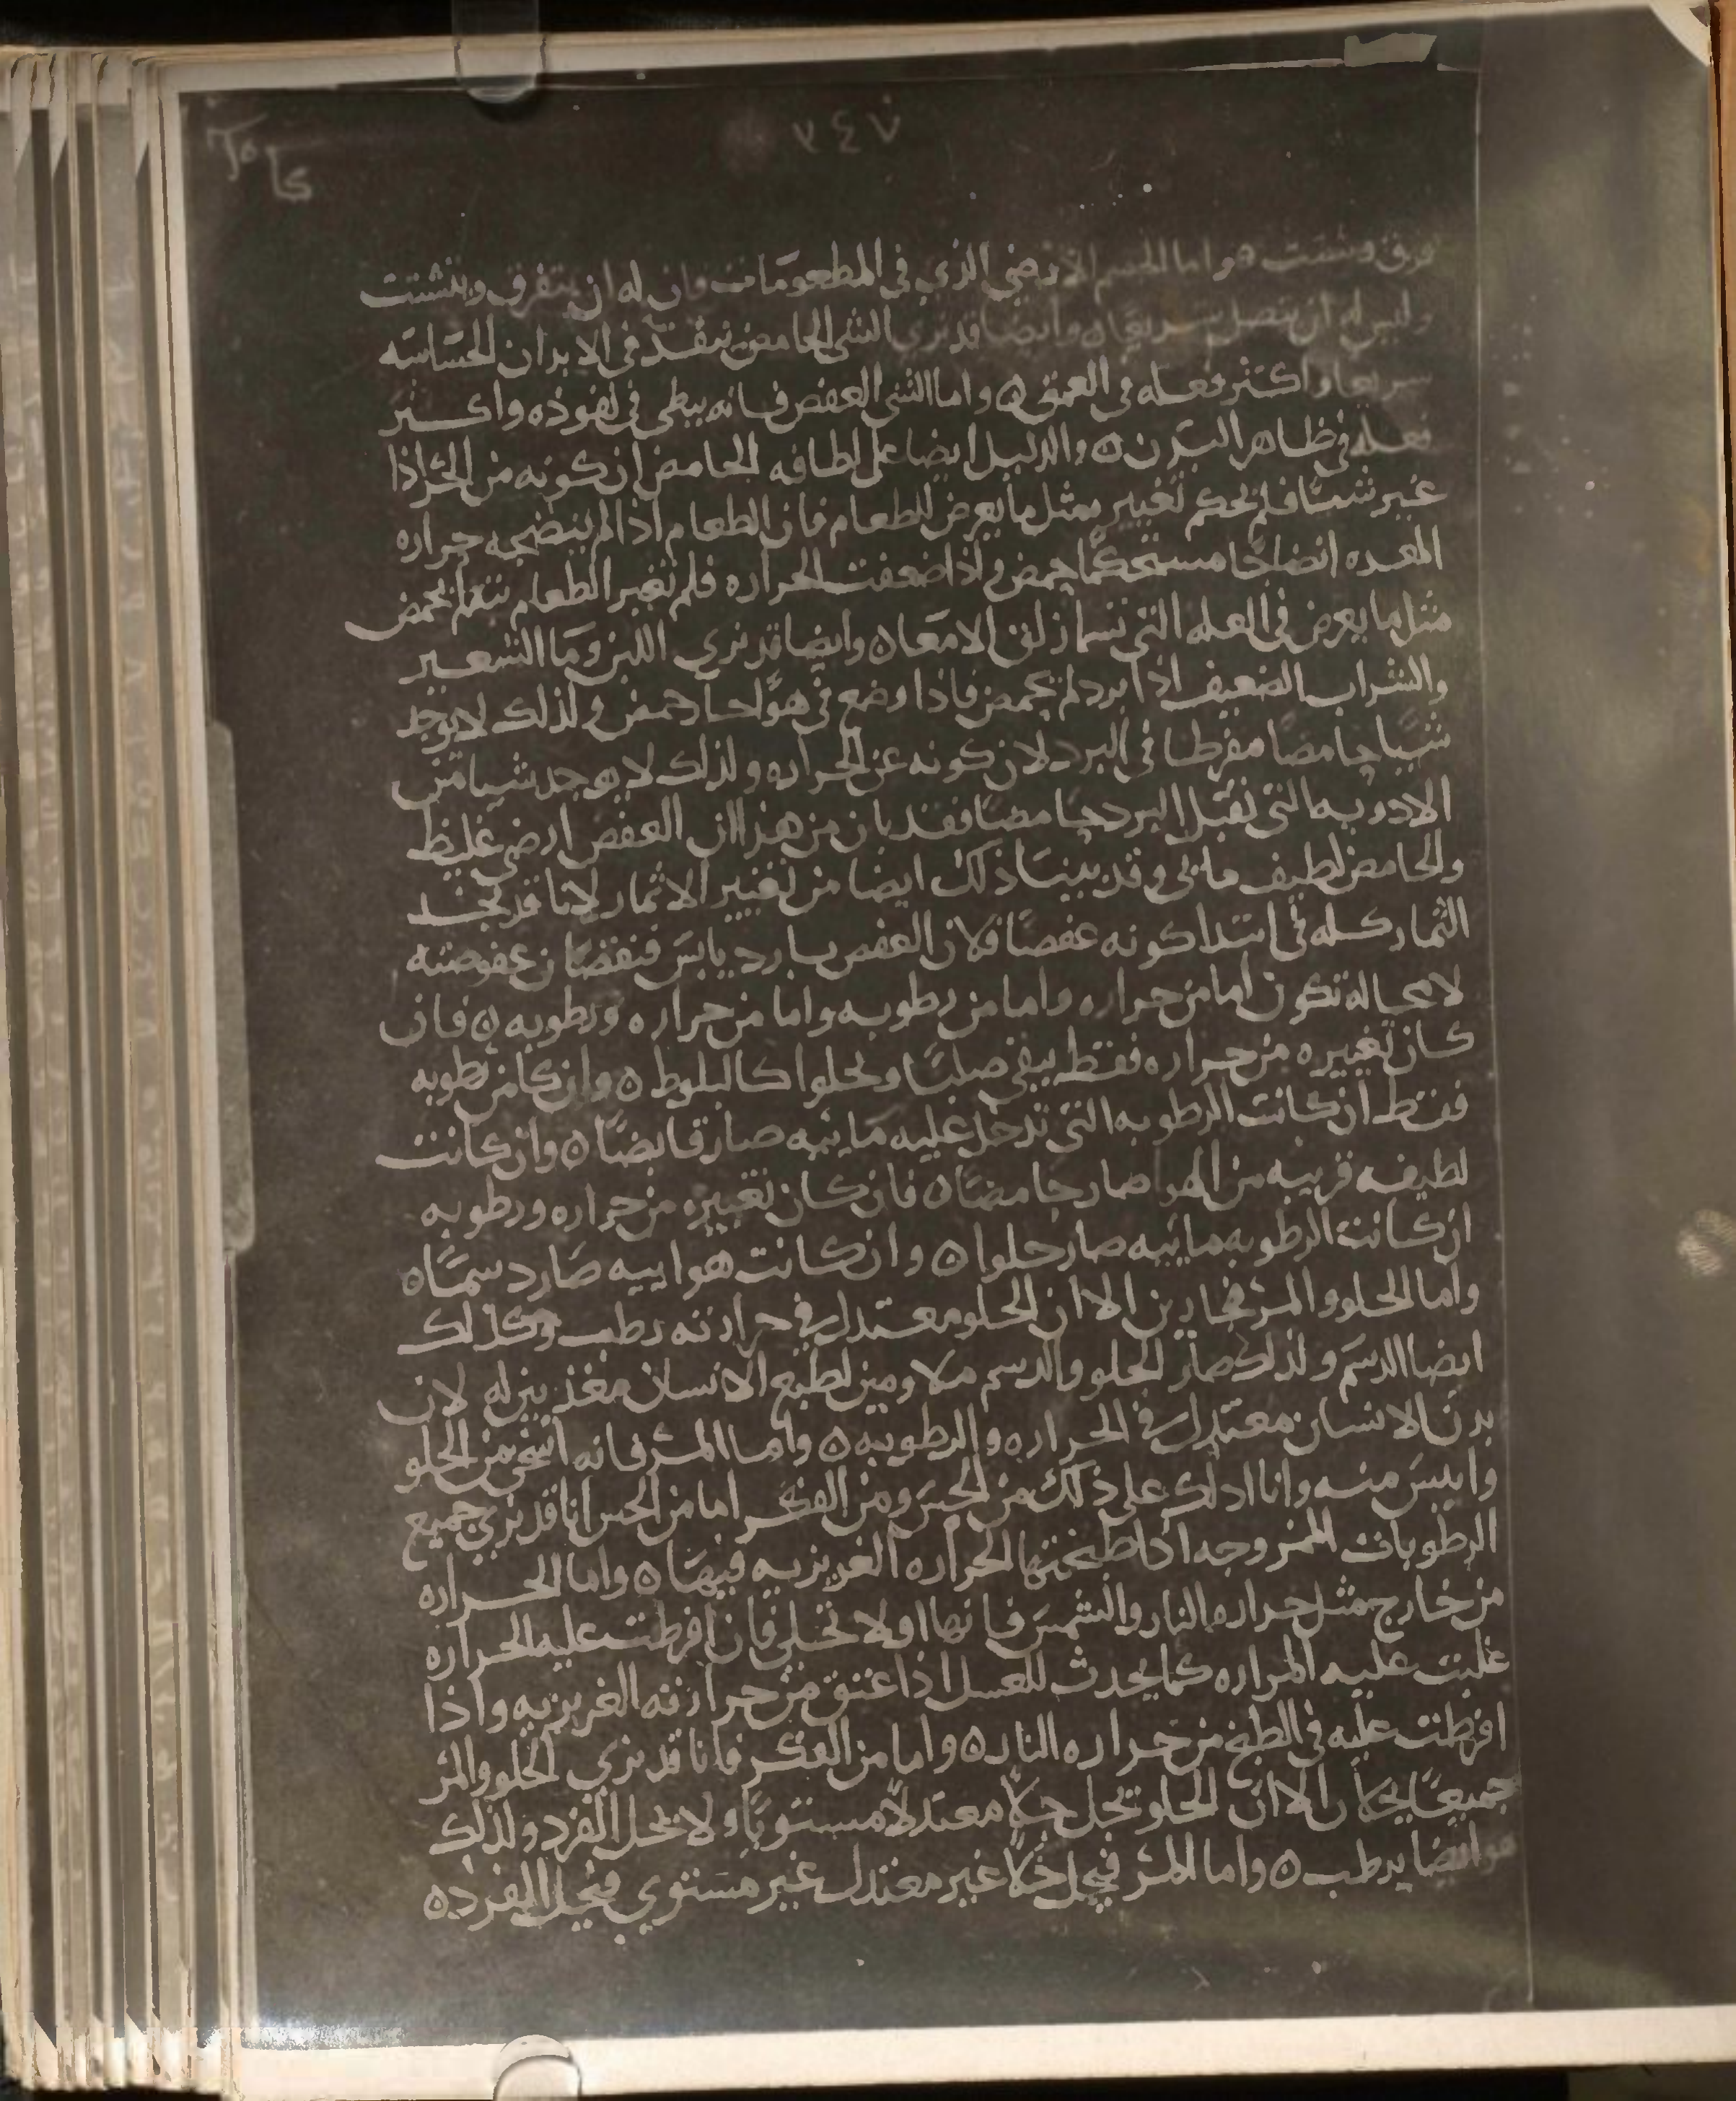 ٧٤٧
فرق وشتت ٥ واما الجسم الارضي الذي في المطعومات فان له ان يتفرق ويتشتت
وليس له ان يتصل سريعا ٥ وايضا قد نري الشي الحامض ينفذ في الابدان الحساسه
سريعا واكثر فعله في العمق ٥ واما الشي العفص فانه يبطي في نفوذه واكثر
فعله في ظاهر البدن ٥ والدليل ايضا على لطافه الحامض ان كونه من الحر اذا
غير شيئا فلم يحكم تغييره مثل ما يعرض للطعام فان الطعام اذا لم ينضجه حراره
المعده انضاجا مستحكما حمض واذا ضعفت الحراره فلم تغير الطعام بتة لم يحمض
مثل ما يعرض في العله التي تسما زلق الامعا ٥ وايضا قد نري اللبن وما الشعير
والشراب الضعيف اذا برد لم يحمض فاذا وضع في هوا حار حمض ولذلك لا يوجد
شيا حامضا مفرطا في البرد لان كونه عن الحراره ولذلك لا يوجد شيا من
الادويه التي تقتل بالبرد حامضا فقد بان من هذا ان العفص ارضي غليظ
والحامض لطيف مايي وقد بينا ذلك ايضا من تغيير الاثمار لانا قد نجد
الثمار كله في ابتدا كونه عفصا فلان العفص بارد يابس فنقصان عفوصته
لا محاله تكون اما من حراره واما من رطوبه واما من حراره ورطوبه ٥ فان
كان تغييره من حراره فقط يبقي صلبا ويحلوا كالبلوط ٥ وان كان من رطوبه
فقط ان كانت الرطوبه التي تدخل عليه ماييه صار قابضا ٥ وان كانت
لطيفه قريبه من الهوا صار حامضا ٥ فان كان تغييره من حراره ورطوبه
ان كانت الرطوبه ماييه صار حلوا ٥ وان كانت هواييه صار دسما ٥
واما الحلو والمر فحارين الا ان الحلو معتدل في حرارته رطب وكذلك
ايضا الدسم ولذلك صار الحلو والدسم ملاومين لطبع الانسان مغذيين له لان
بدن الانسان معتدل في الحراره والرطوبه ٥ واما المر فانه اسخن من الحلو
وايبس منه وانا ادلك على ذلك من الحس ومن الفكر اما من الحس انا قد نري جميع
الرطوبات الممزوجه اذا طبختها الحراره الغريزيه فيها ٥ واما الحراره
من خارج مثل حراره النار والشمس فانها اولا تحلي فان افرطت عليه الحراره
غلبت عليه المراره كما يحدث للعسل اذا عتق من حرارته الغريزيه واذا
افرطت عليه في الطبخ من حراره النار ٥ واما من الفكر فانا قد نري الحلو والمر
جميعا يحلان الا ان الحلو يحل حلا معتدلا مستويا ولا يحل المفرد ولذلك
هو ايضا يرطب ٥ واما المر فيحل حلا غير معتدل غير مستوي فيحل المفرد ٥